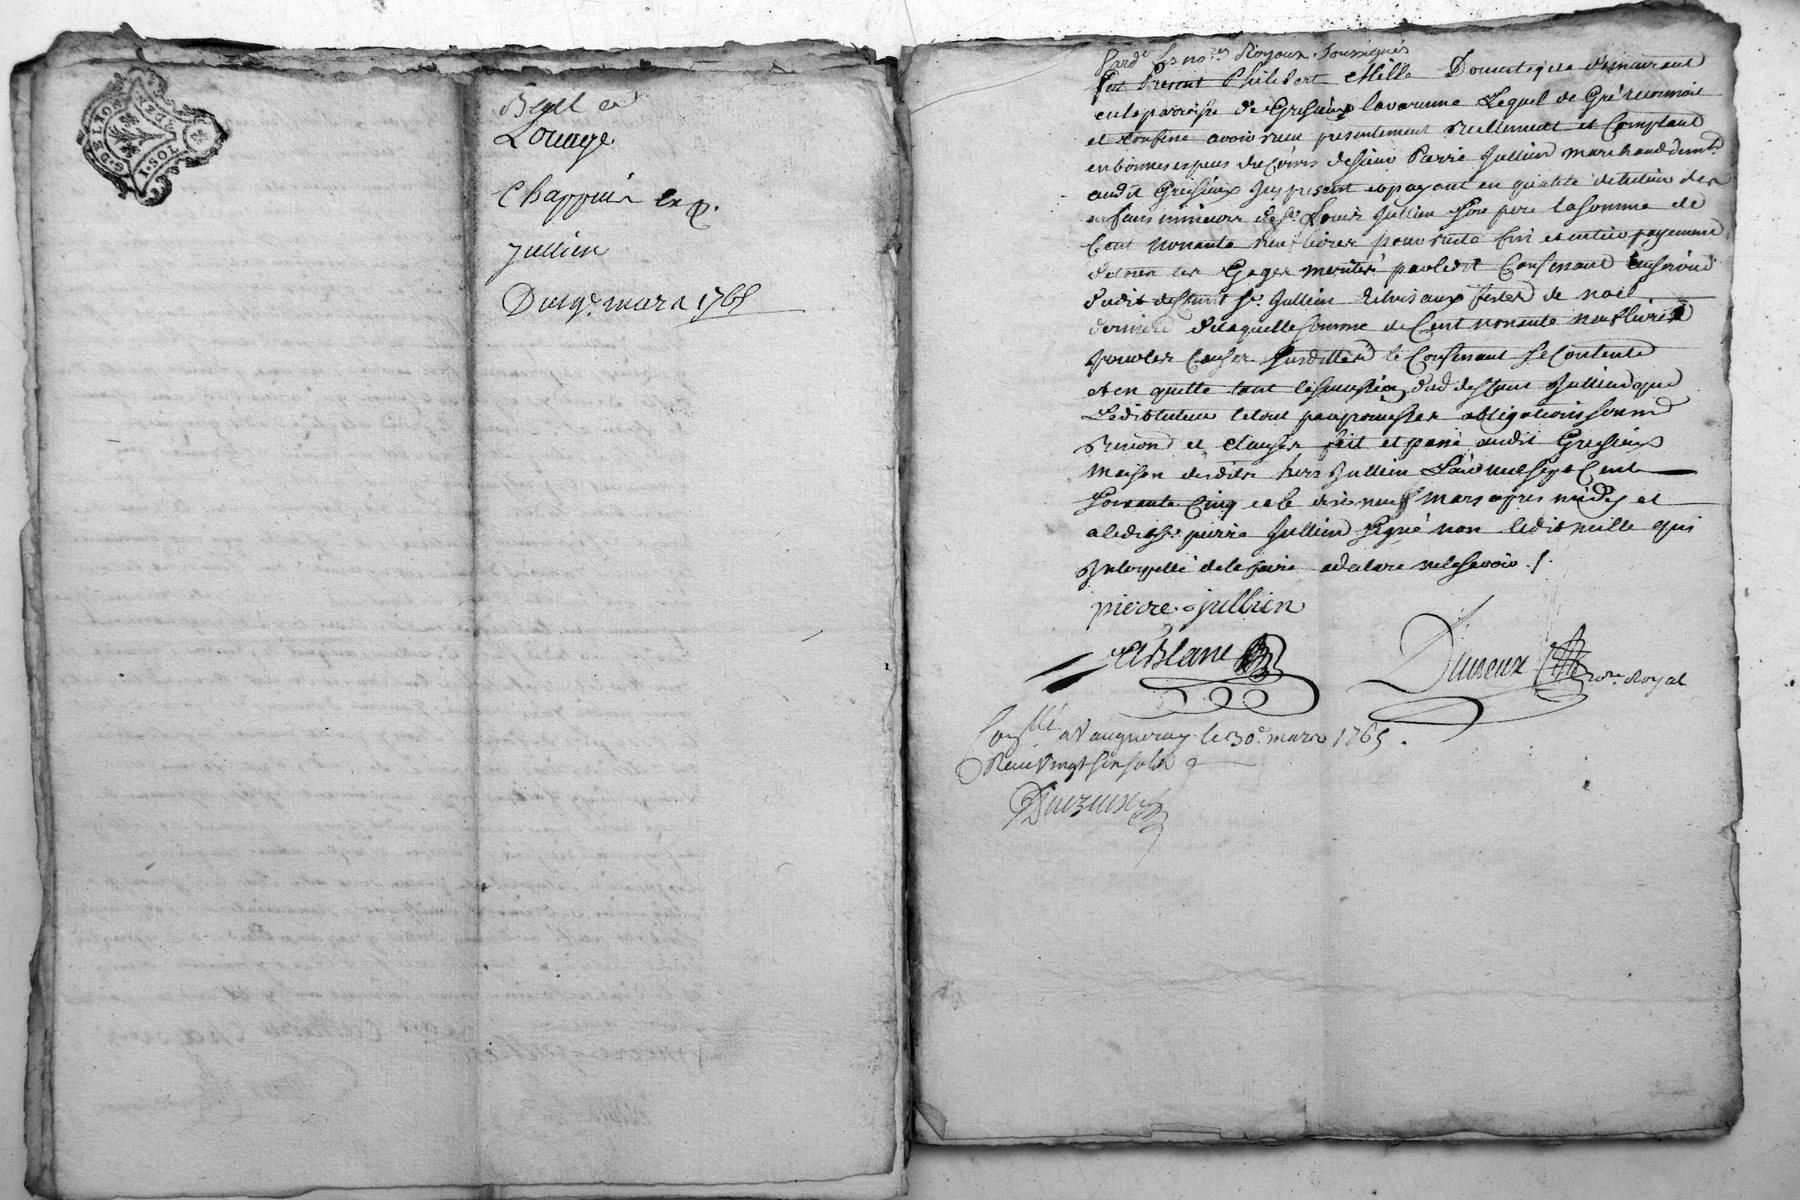 Louage
Chappuis
Jullien
Du 19e mars 1765
Pardt les nores Royaux Soussignés
fut Present Philibert Mille Domestique demeurant
en la parroisse de Gresieux lavarenne Lequel de Gré reconnoit
et Confesse avoir receu presentement reellement et Comptant
en bonnes especes du Cours de Sieur Pierre Jullien marchand demt
audit Gresieux icy present et payant en qualité de tuteur des
enfans mineurs de Sr Louis Jullien Son pere la Somme de
Cent nonante neuf livres pour reste fin et entier payement
de tous les Gages merités par ledit Confessant au service
dudit deffunt Sr Jullien aux festes de noel
derniere de laquelle Somme de Cent nonante neuf livres
pour les Causes Susdittes le Confessant Se Contente
et en quitte tant dud deffunt Jullien que
Ledit tuteur le tout par promesses obligations Soumon
Renon et clauses fait et passé audit Gresieux
maison desdits hers Jullien L'an mil Sept Cent
Soixante Cinq et le dix neuf mars apres midy et
a ledit Sr pierre Jullien Signé non ledit mille qui
Interpellé de le faire a declaré ne le Scavoir ./.
pierre jullien
Leblanc
Dureux nore Royal
Conllé a Vaugneray le 30e mars 1765.
Receu Vingt Six Sols